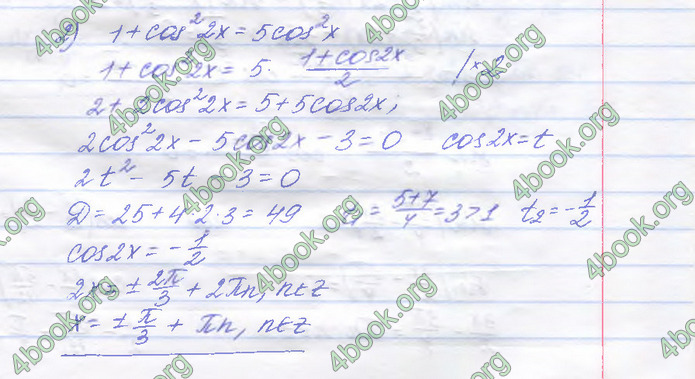 2) 1+cos²2x = 5cos²x
1+cos²2x = 5 · (1+cos2x)/2 /×2
2+2cos²2x = 5+5cos2x;
2cos²2x - 5cos2x - 3 = 0 cos2x = t
2t² - 5t - 3 = 0
D = 25+4·2·3 = 49 t₁ = (5+7)/4 = 3>1 t₂ = -1/2
cos2x = -1/2
2x = ± 2π/3 + 2πn, n∈Z
x = ± π/3 + πn, n∈Z
4book.org